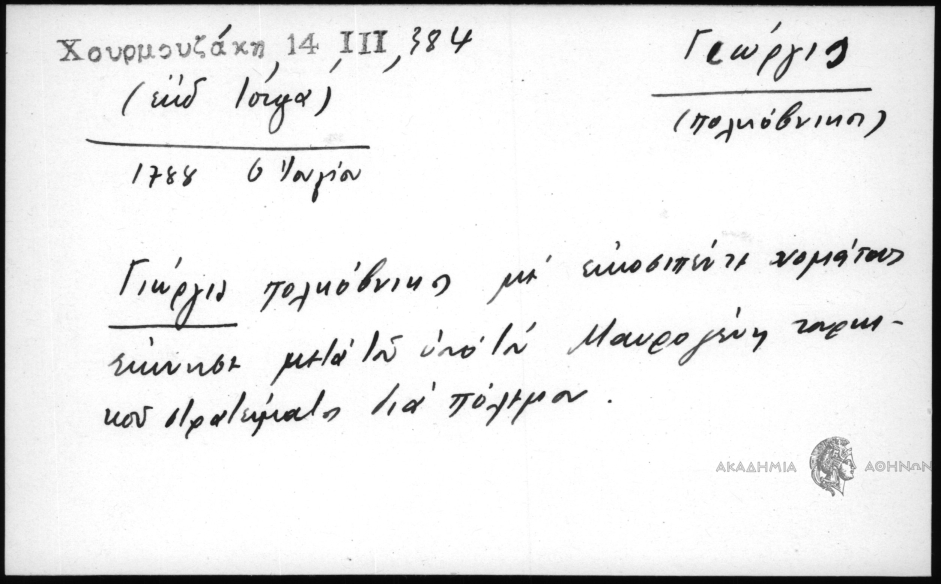 Χουρμουζάκη, 14, III, 384
(ἐκδ Ἰόργα)
1788 6 Ἰουνίου
Γεώργις
(πολκόβνικος)
Γιώργις πολκόβνικος μὲ εἰκοσιπέντε νομάτους
ἐκίνησε μετὰ τοῦ ὑπὸ τὸν Μαυρογένη τουρκι-
κοῦ στρατεύματος διὰ πόλεμον.
ΑΚΑΔΗΜΙΑ ΑΘΗΝΩΝ